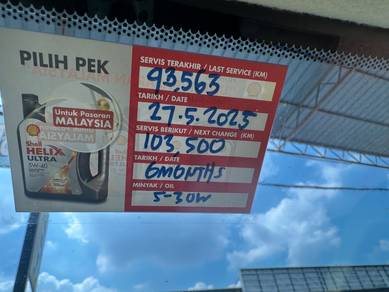 PILIH PEK
Untuk Pasaran
MALAYSIA
Shell
HELIX
ULTRA
5W-40
SERVIS TERAKHIR / LAST SERVICE (KM)
93,563
TARIKH / DATE
27.5.2025
SERVIS BERIKUT / NEXT CHANGE (KM)
103,500
TARIKH / DATE
6MONTHS
MINYAK / OIL
5-30W